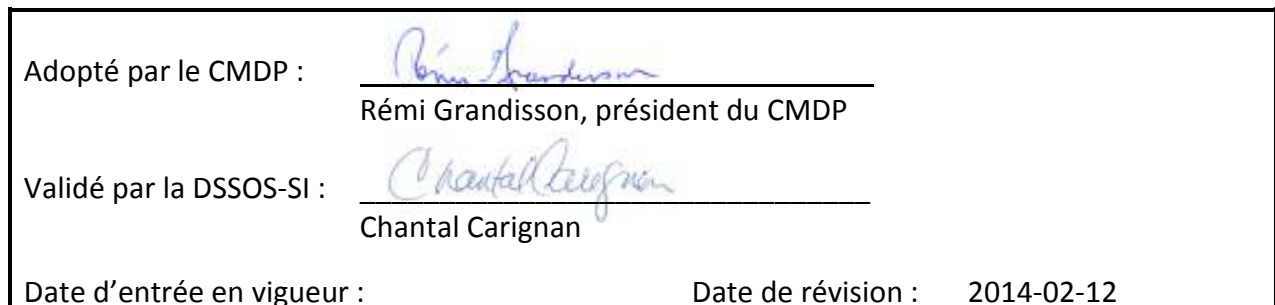 Adopté par le CMDP : Rémi Grandisson
Rémi Grandisson, président du CMDP
Validé par la DSSOS-SI : Chantal Carignan
Chantal Carignan
Date d’entrée en vigueur : Date de révision : 2014-02-12